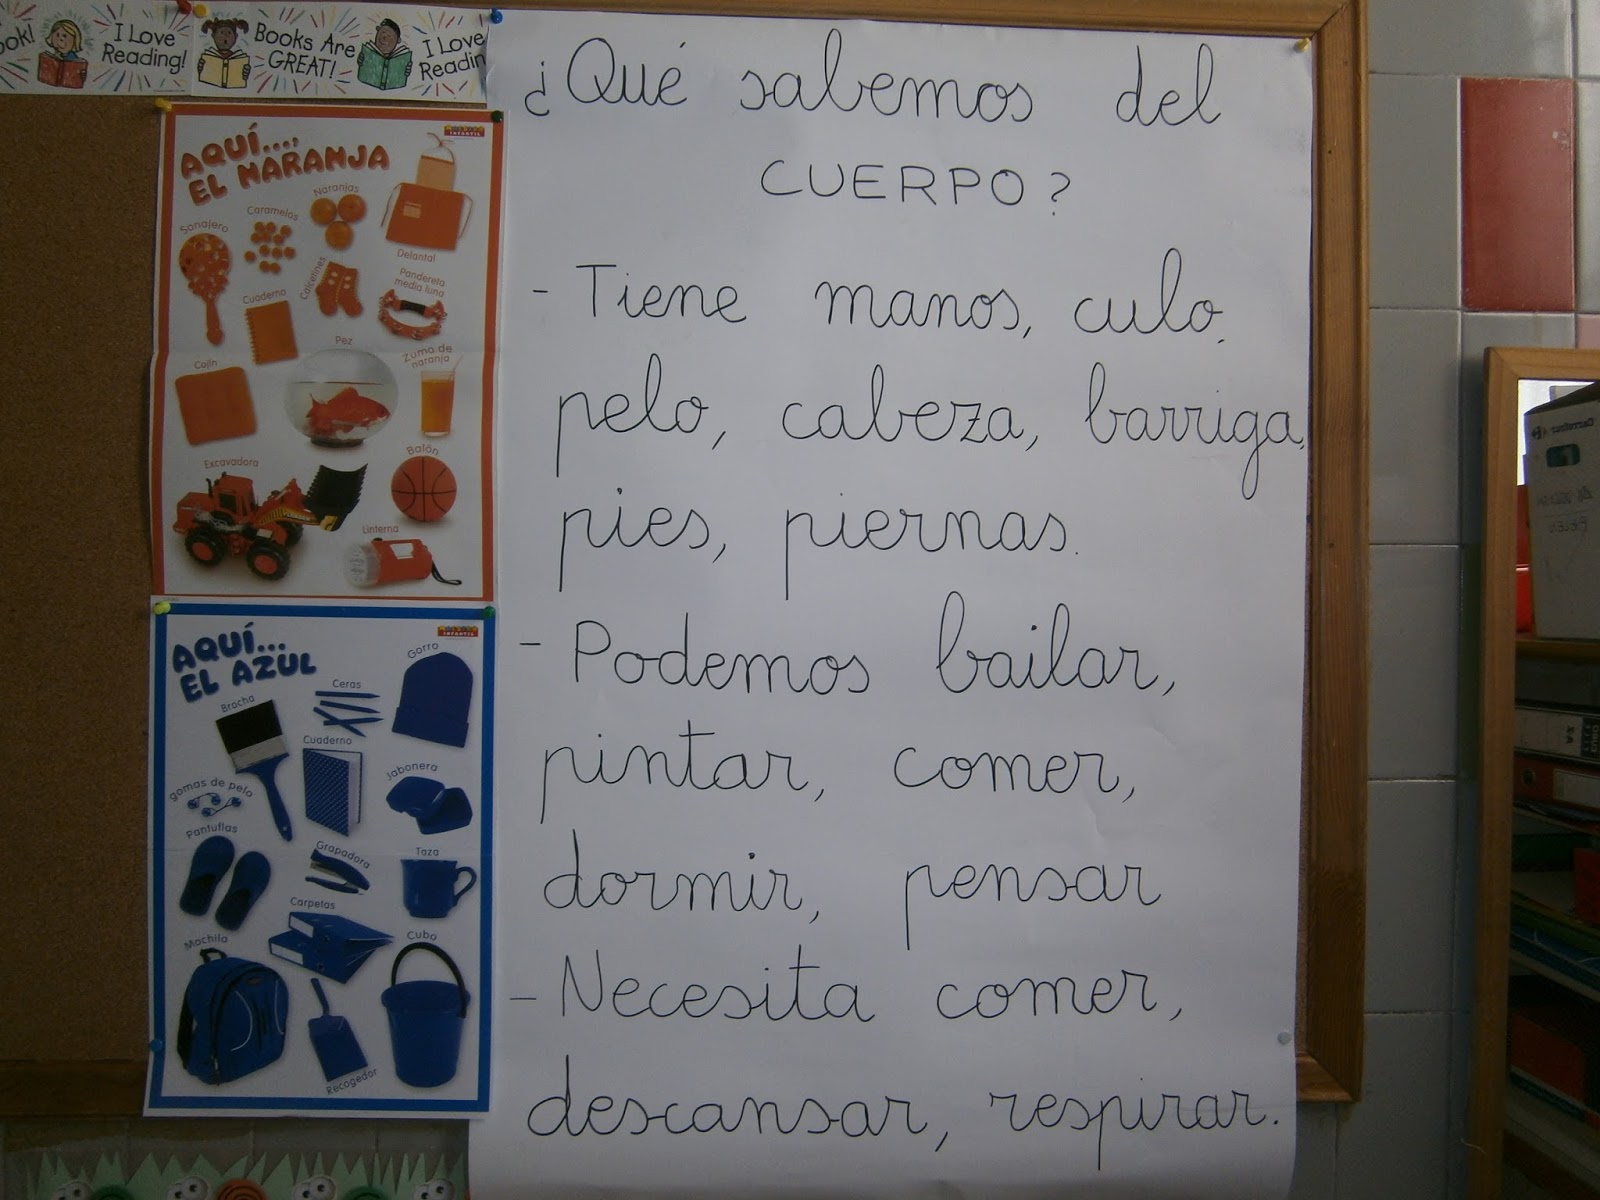 ook!
I Love
Reading!
Books Are
GREAT!
I Love
Readin
¿Qué sabemos del
CUERPO?
- Tiene manos, culo,
pelo, cabeza, barriga,
pies, piernas.
- Podemos bailar,
pintar, comer,
dormir, pensar
- Necesita comer,
descansar, respirar.
AQUÍ...,
EL NARANJA
INFANTIL
Naranjas
Caramelos
Sonajero
Delantal
Calcetines
Pandereta
media luna
Cuaderno
Pez
Zumo de
naranja
Cojín
Excavadora
Balón
Linterna
AQUÍ...
EL AZUL
INFANTIL
Gorro
Ceras
Brocha
Cuaderno
Jabonera
gomas de pelo
Pantuflas
Grapadora
Taza
Carpetas
Mochila
Cubo
Recogedor
Carrefour